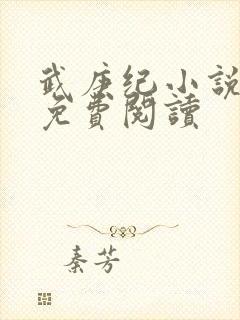 武庚纪小說
免費閱讀
秦芳